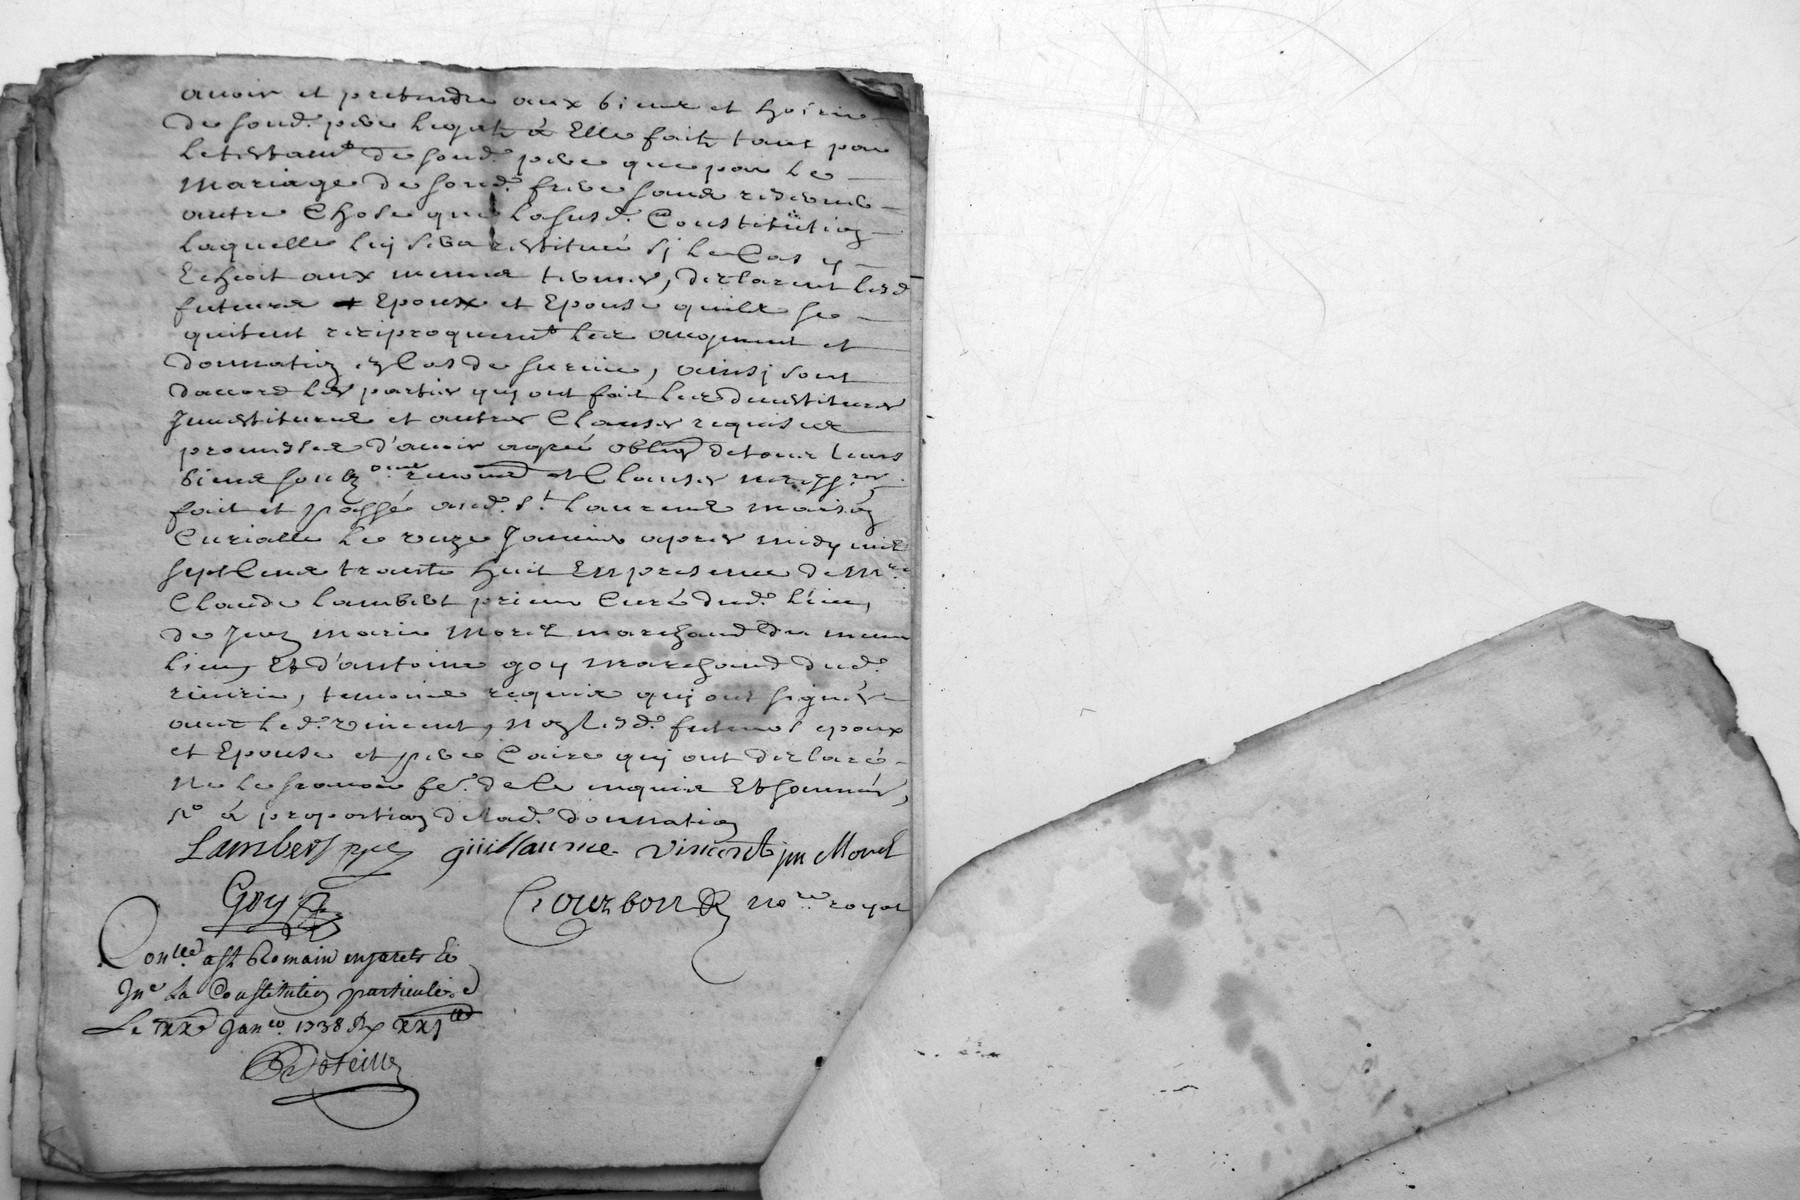 avoir et pretendre aux biens et hoirie
de soud. pere legat a Elle fait tant par
le testam.t de soud. pere que par le
mariage de soud. frere sans reserve
autre Chose que la susd. Constitution
laquelle luy sera restituée sy le Cas y
Echeoit aux mesmes termes, declarent lesd
futeurs Epoux et Epouse quils se
quitent reciproquem.t les augment et
donnation, en Cas de survie, ainsy sont
daccord les parties quy ont fait les devestitures
Jnvestitures et autres Clauses requises
promesses d'avoir agreé oblig.on de tous leurs
biens renon.on et Clauses
fait et passé aud. S.t Laurens maison
Curialle le onze Janvier apres midy mil
sept Cens trante huit En presence de M.re
Claude Lambert prieur Curé dud. lieu,
de Jean marie Morel marchand du mesme
lieu, Et d'antoine goy marchand dud.
temoins requis quy ont signés
avec led. vincent, non lesd. futeurs epoux
et Epouse et pere Caire quy ont declaré
ne le scavoir fe.re de ce enquis Et sommés,
s.e a proportion de lad. donnation
Lambert pr guillaume vincent jm Morel
Goy Courbon no.re royal
Con.lle a St Romain en Jarets
Jn.e La Constitution particuliere
Le xx.e Janv.er 1738 R xxj